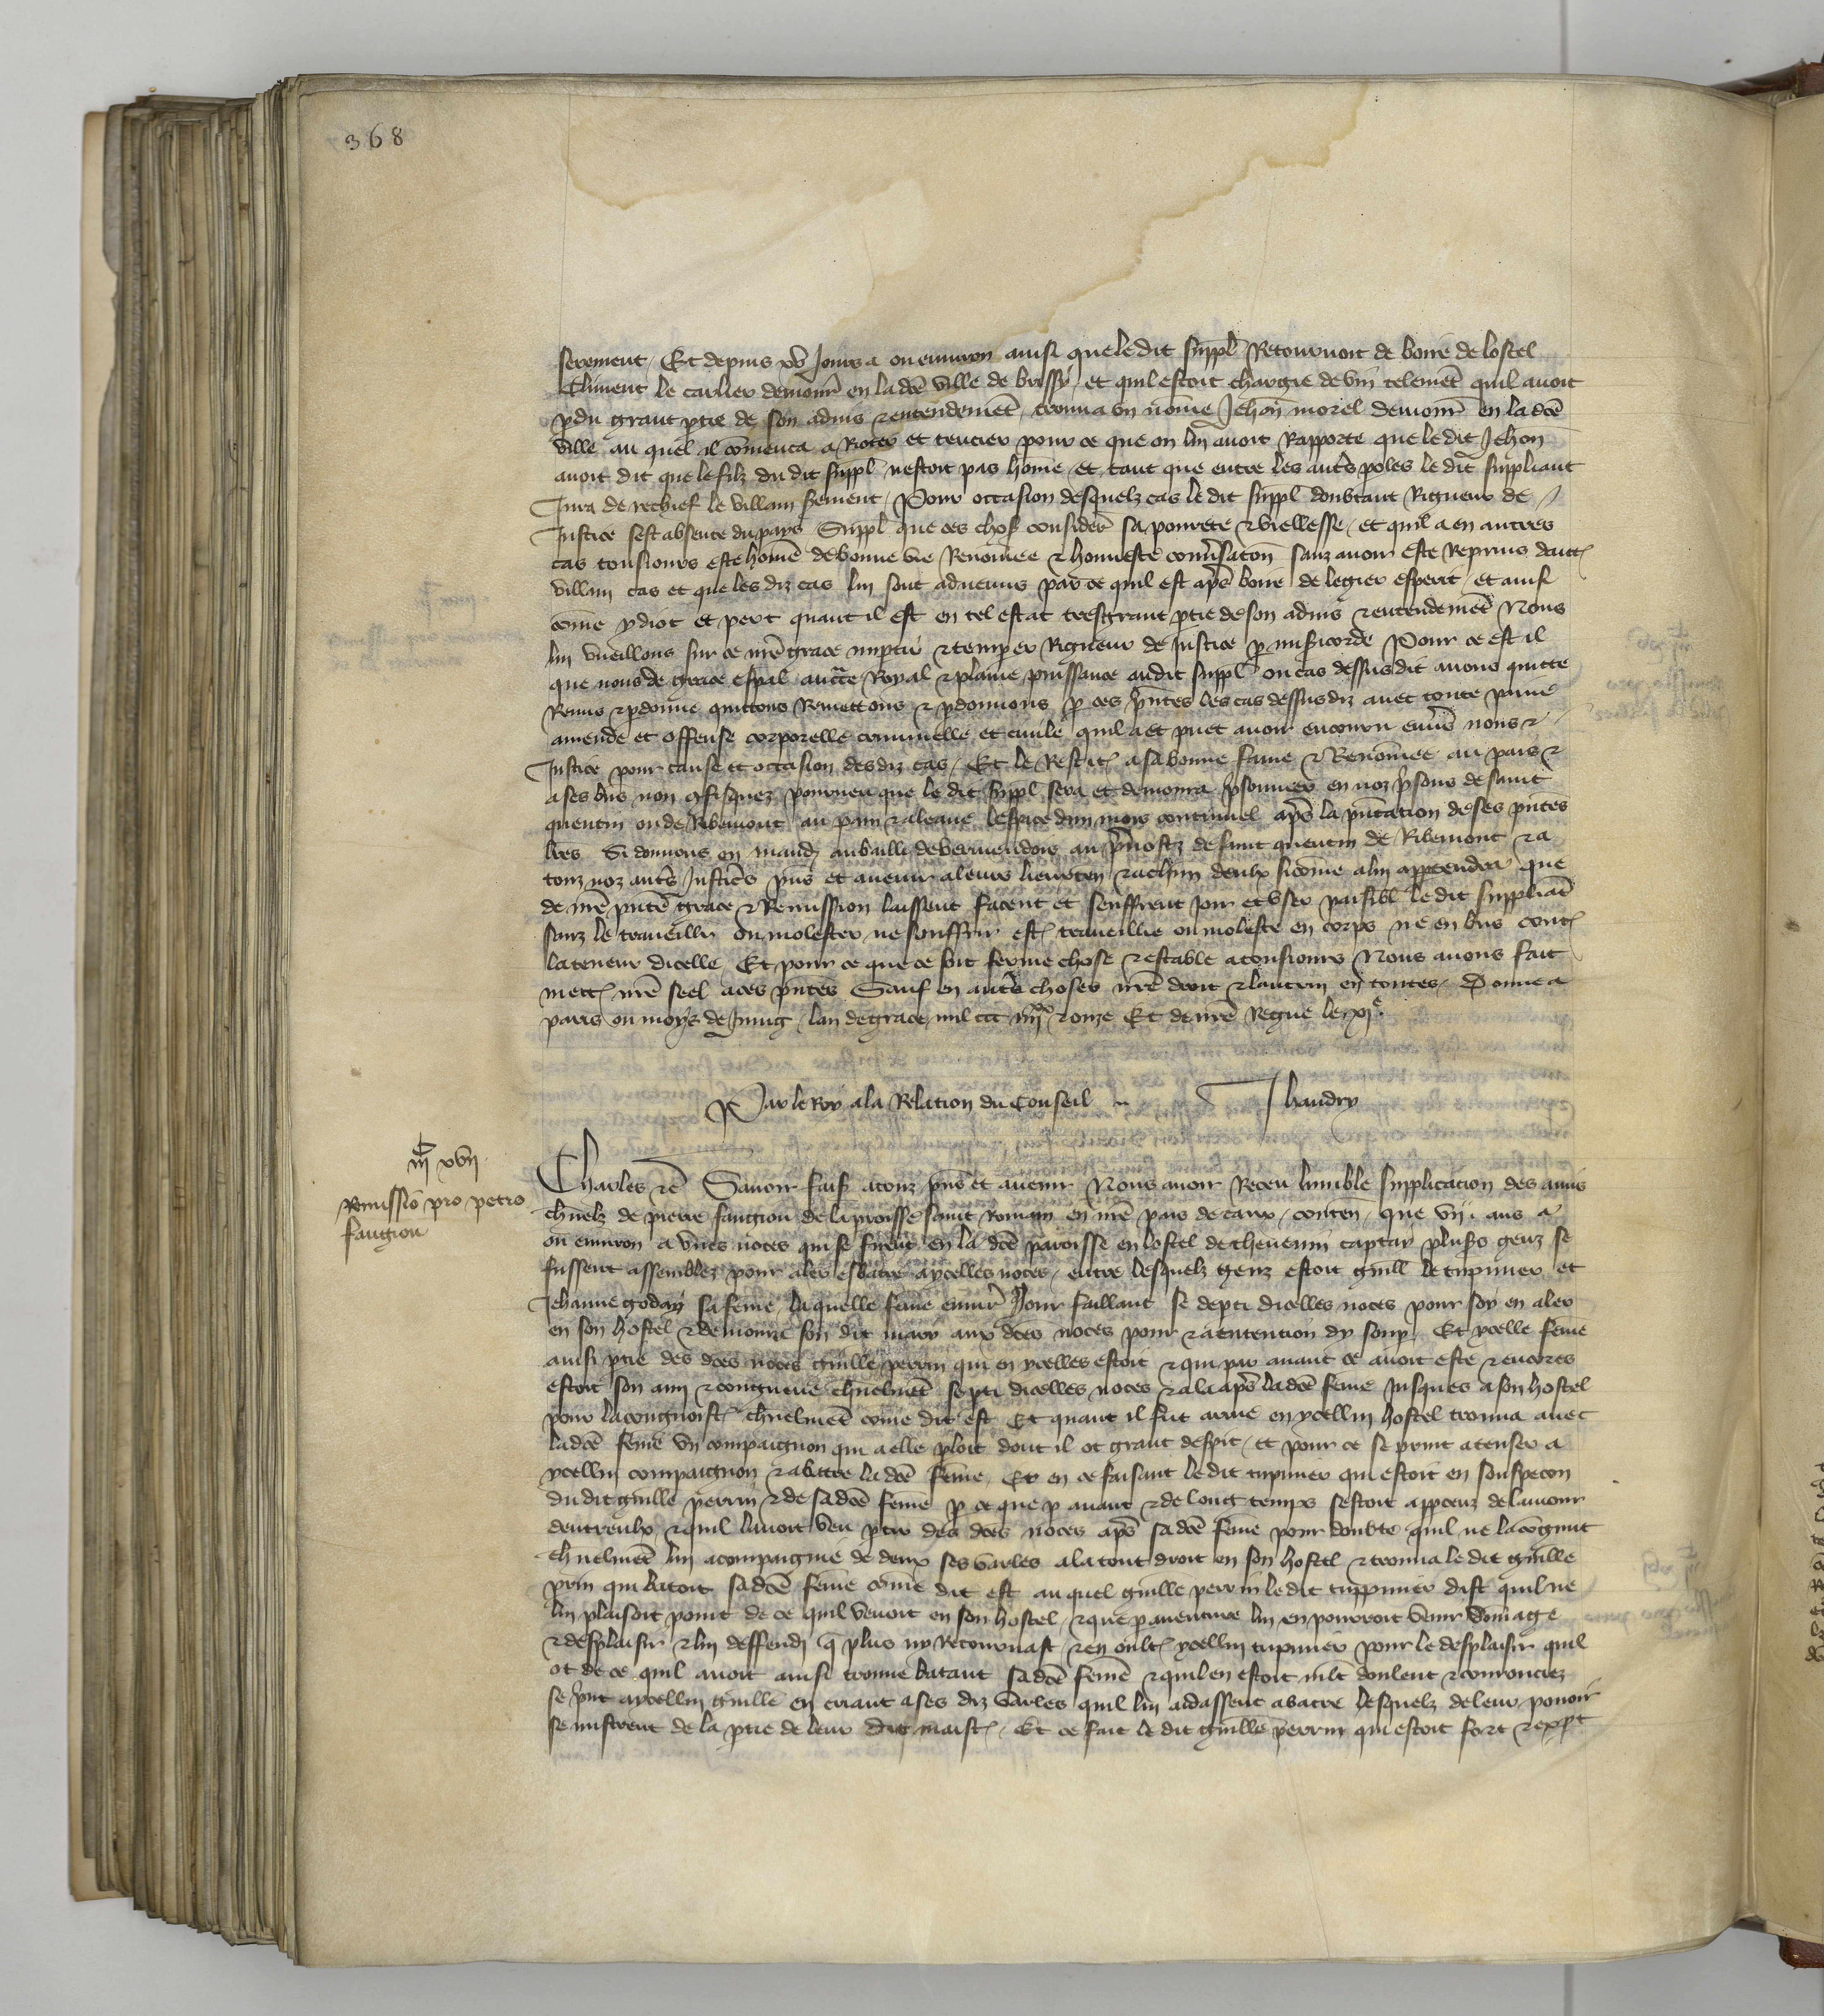 368
serement / Et depuis xv jours a ou environ ainsi que le dit suppl Retournoit de boire de lostel
Climent le carlier demour en la dce ville de brissy / et quil estoit chargie de vin telemet quil avoit
pdu grant ptie de son advis & entendemet / trouva un nome Jehan morel demour en la dce
ville au quel il comenca a Rioter et tencier pour ce que on luy avoit Rapporte que le dit Jehan
avoit dit que le filz du dit suppl nestoit pas home / et tant que entre les autes poles le dit suppliant
Jura de rechief le villain serement / Pour occasion desquelz cas le dit suppl doubtant Rigueur de
Justice sest absente du pays Suppl que ces chos consider sa povrete & viellesse / et quil a en autres
cas tousiours este home de bonne vie Renomee & honneste conversacon sanz avoir este Reprins daut
villain cas et que les diz cas lui sont advenus par ce quil est aps boire de legier esperit / et ainsi
come ydiot et pert quant il est en tel estat tresgrant ptie de son advis & entendemet Nous
lui vueillons sur ce nre grace impartir & temper Rigueur de justice p misericorde Pour ce est il
que nous de grace espal aucte Royal & plaine puissance audit suppl ou cas dessusdit avons quitte
Remis & pdonne quittons Remettons & pdonnons p ces pntes les cas dessusdiz avec toute peine
amende et offense corporelle criminelle et civile quil a et puet avoir encouru envers nous &
Justice pour cause et occasion desdiz cas / Et le Restit a sa bonne fame & Renomee au pais &
a ses bns non cfisquez pourveu que le dit suppl sera et demoura psonnier en noz psons de saint
quentin ou de Ribemont au pain & a leaue lespace dun mois continuel aps la pntation de ses pntes
lres Si donnons en mand au bailli de vermendois au prevostz de saint quentin de Ribemont & a
touz noz autes Justiciers pns et avenir a leurs lieuxten & a chun deulx sicome a lui apptendra que
de nre pnte grace & Remission laissent facent et seuffrent joir et user paisibl le dit suppliat
sanz le traveillier ou molester ne souffrir est traveillie ou moleste en corps ne en bns cont
la teneur dicelle Et pour ce que ce soit ferme chose & estable a tousiours Nous avons fait
mett nre seel a ces pntes Sauf en autes choses nre droit & lautruy en toutes / Donne a
paris ou moys de Juing / lan de grace mil ccc iiiixx & onze Et de nre Regne le xi e
Par le Roy a la Relation du Conseil J handry
xvii
Remissio pro petro
faugiou
Charles &c Savoir fais a touz pns et avenir Nous avoir Receu lumble supplication des amis
chnelz de pierre faugiou de la proisse saint Romain en nre pais de caux / conten / que vii ans a
ou environ a unes noces qui se firent en la dce paroisse en lostel de thevenin captay plusrs genz se
fussent assemblez pour aler esbatre a ycelles noces / entre lesquelz genz estoit guill le tupinier et
Jehanne goday sa feme / la quelle feme envir Jour faillant se depti dicelles noces pour soy en aler
en son hostel & demoura son dit mary aux dces noces pour & a entention dy soup Et ycelle feme
ainsi ptie des dces noces guille perrin qui en ycelles estoit & qui par avant ce avoit este & encores
estoit son ami & congneue chnelmet se pti dicelles noces & ala aps la dce feme jusques a son hostel
pour la congnoist chnelmet come dit est Et quant il fut arrive en ycelluy hostel trouva avec
la dce feme un compaignon qui a elle ploit dont il ot grant despit / et pour ce se print a tenser a
ycelluy compaignon & a batre la dce feme Et en ce faisant le dit tupinier qui estoit en souspecon
du dit guille perrin & de sa dce feme p ce que p avant & de long temps sestoit appceuz de lamour
dentreulx & quil lavoit veu ptir des dces noces aps sa dce feme pour doubte quil ne la cogneut
chnelmet lui acompaigne de deux ses varles ala tout droit en son hostel & trouva le dit guille
prin qui batoit sa dce feme come dit est au quel guille perrin le dit tuppinier dist quil ne
lui plaisoit point de ce quil venoit en son hostel / & que p aventure lui en pourroit venir domage
& desplaisir & lui deffendi q plus ny Retournast & en oult ycellui tupinier pour le desplaisir quil
ot de ce quil avoit ainsi trouve batant sa dce feme & quil en estoit mlt doulent & courouciez
se pnt a ycelluy guille en criant a ses diz varles quil lui aidassent a batre lesquelz de leur povoir
se mistrent de la ptie de leur dit maist / Et ce fait le dit guille perrin qui estoit fort & expt